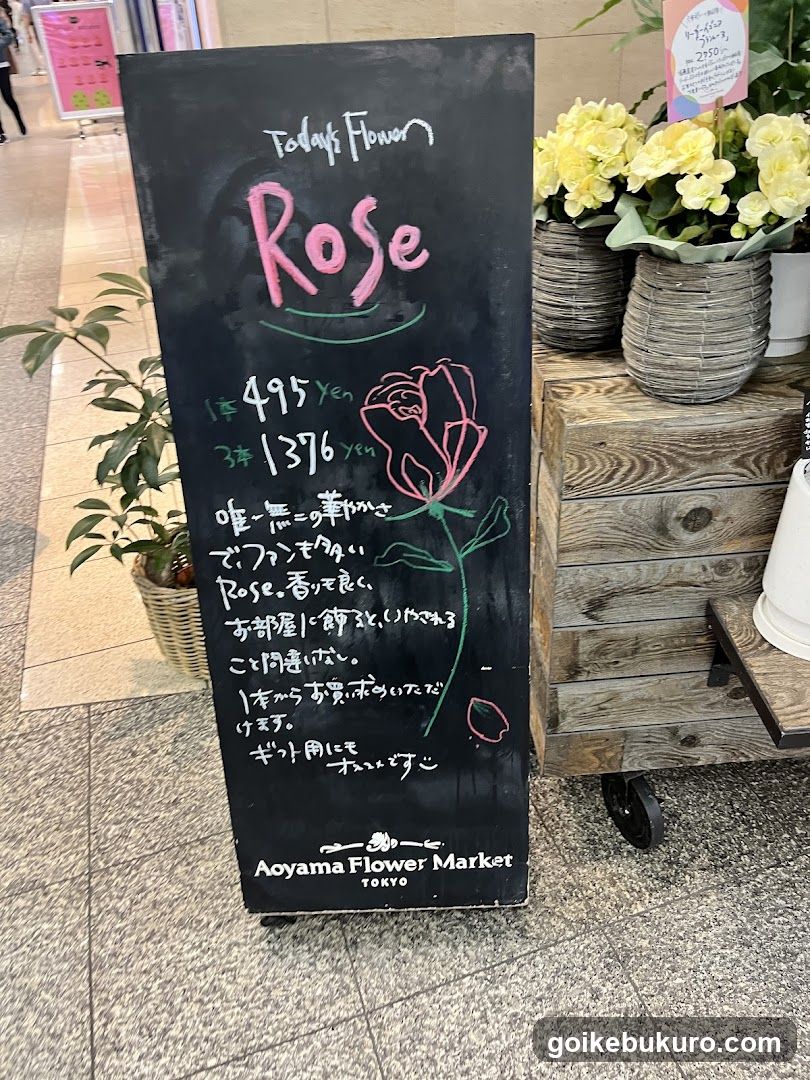 Today's Flower
Rose
1本 495 yen
3本 1376 yen
唯一無二の華やかさ
で、ファンも多い
Rose。香りも良く、
お部屋に飾ると、いやされる
こと間違いなし。
1本からお買い求めいただ
けます。
ギフト用にも
オススメです
Aoyama Flower Market
TOKYO
2750
goikebukuro.com